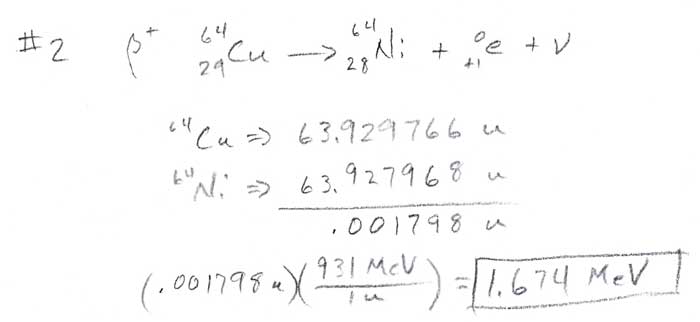 #2 β⁺ ⁶⁴₂₉Cu → ⁶⁴₂₈Ni + ⁰₊₁e + ν
⁶⁴Cu ⇒ 63.929766 u
⁶⁴Ni ⇒ 63.927968 u
.001798 u
(.001798 u)(931 MeV / 1u) = 1.674 MeV